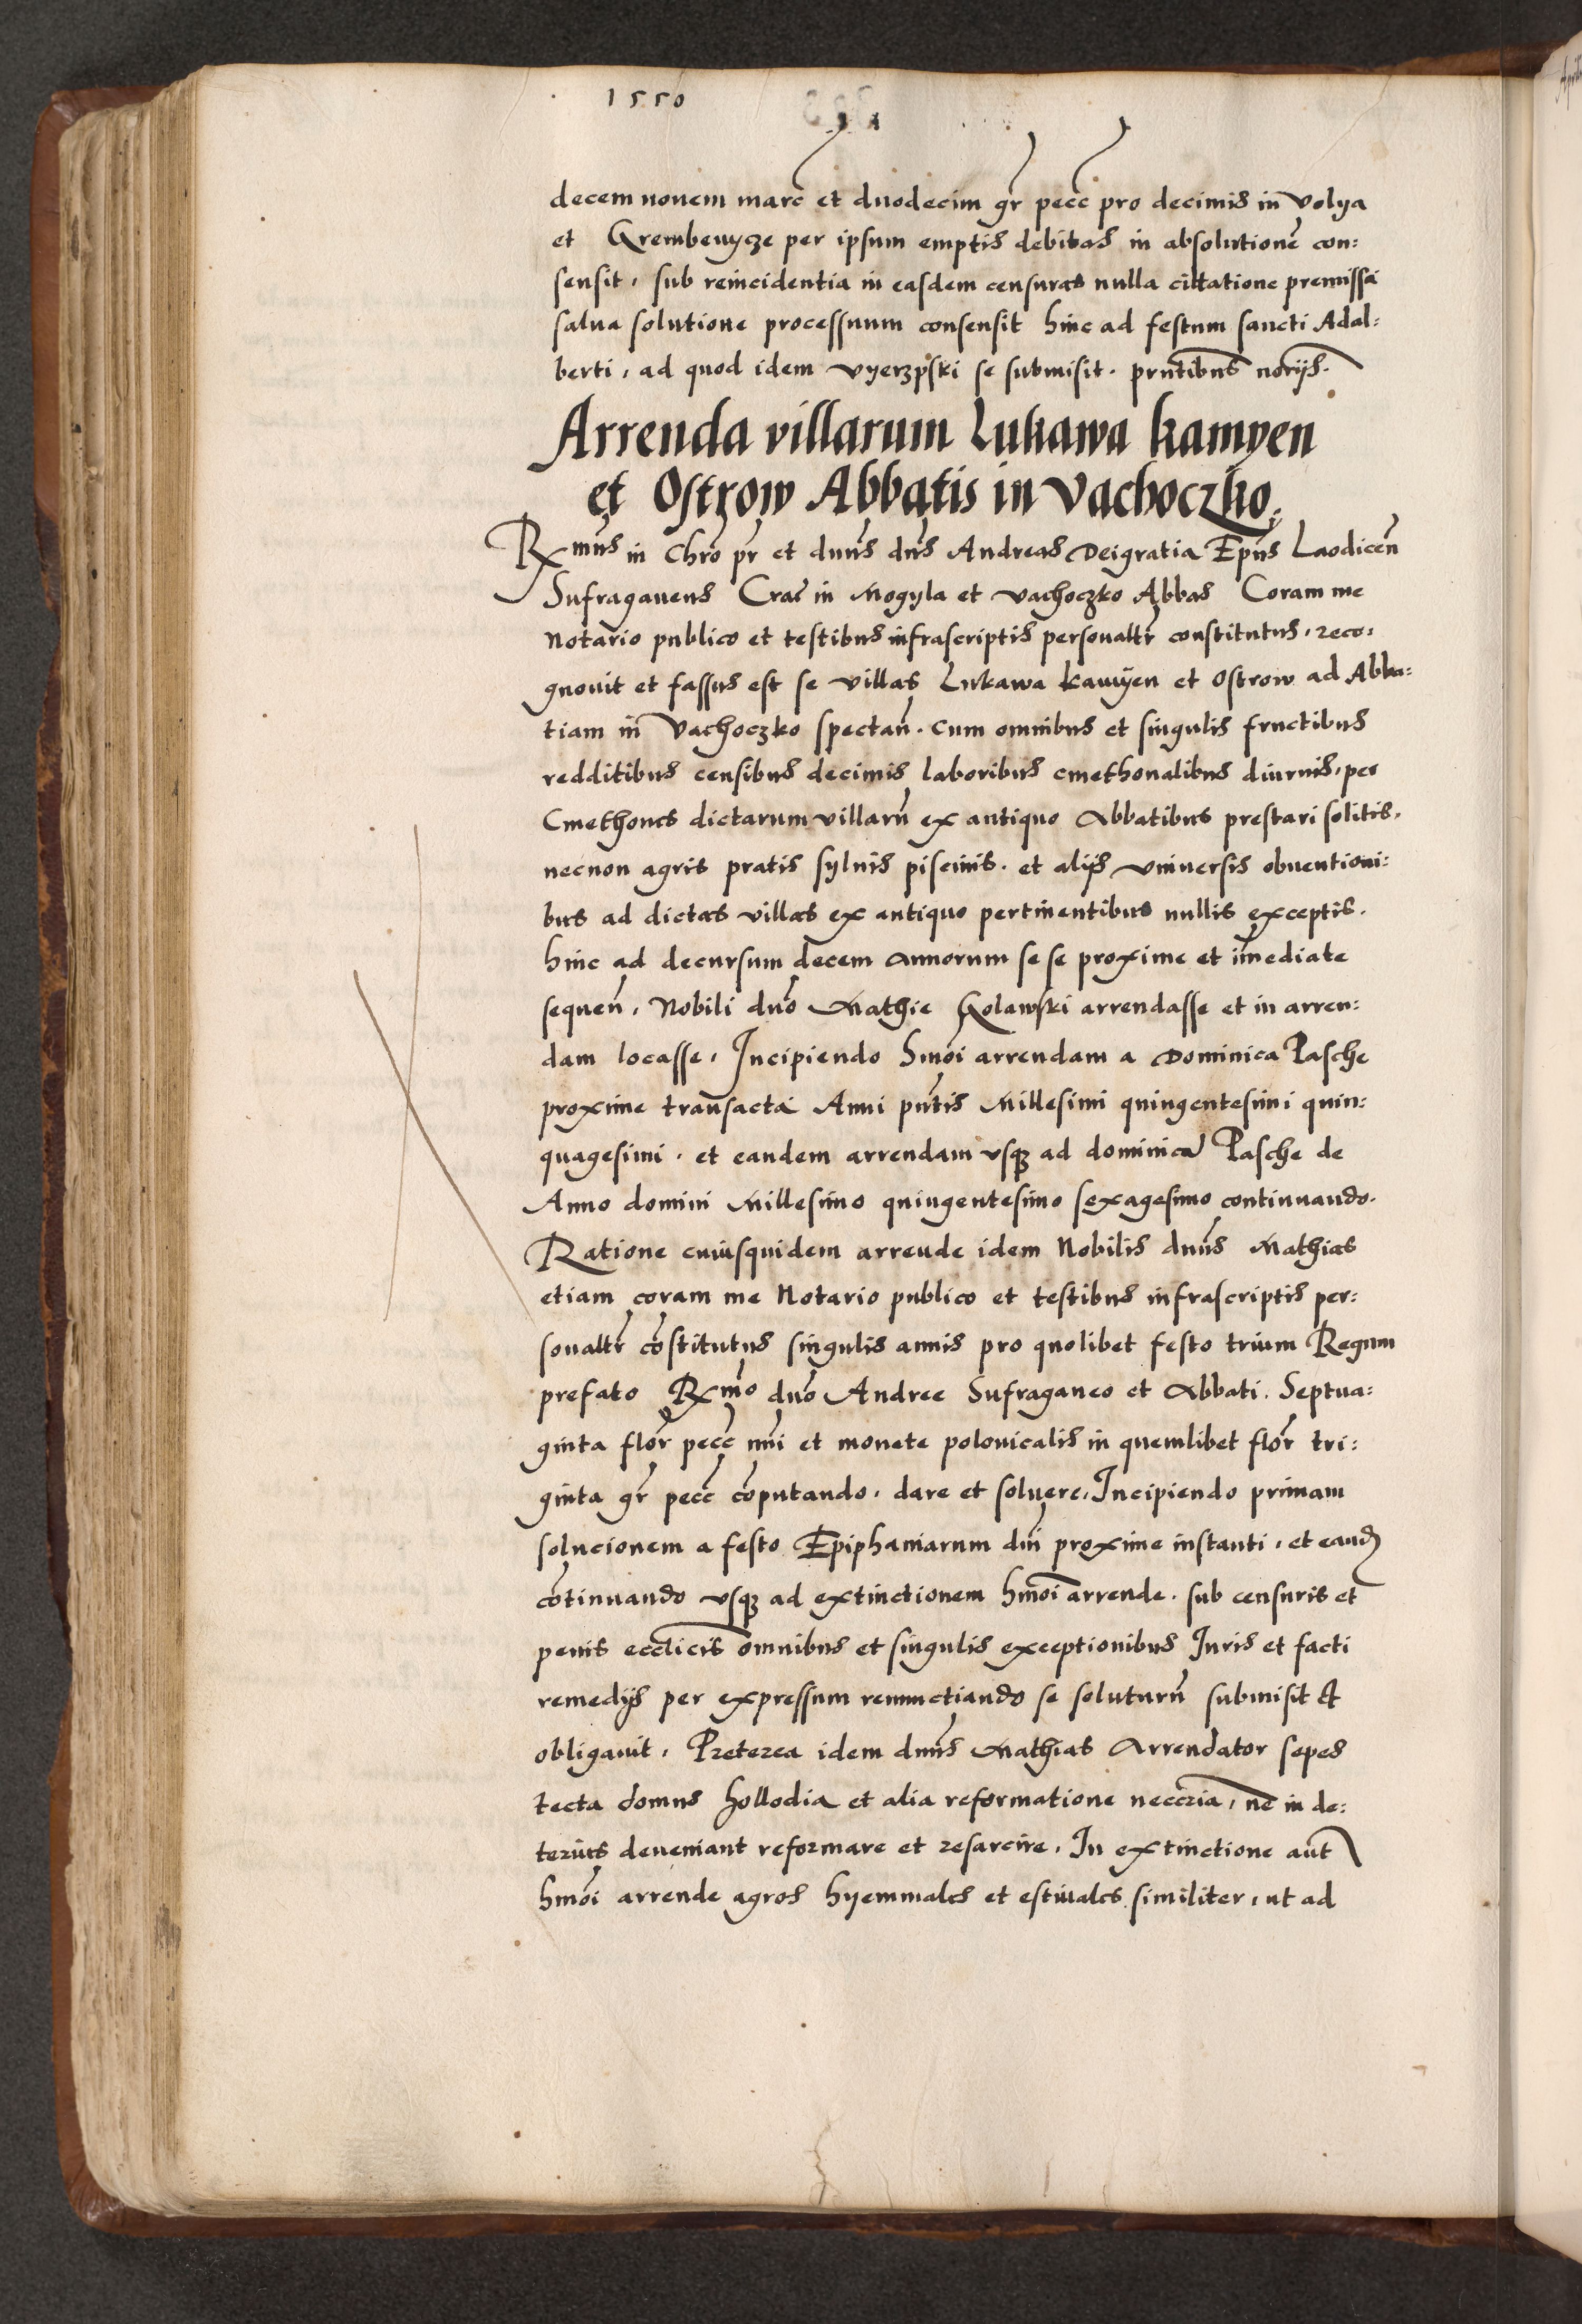 1550
decem novem marc̄ et duodecim gr̄ pecc̄ pro decimis in Volya
et Grembenycze per ipsum emptis debitas in absolutionē con:
sensit, sub reincidentia in easdem censuras nulla cittatione premissa
salua solutione processuum consensit hinc ad festum sancti Adal:
berti, ad quod idem Vyerzpski se submisit. pn̄tibus norijs.
Arrenda villarum Lukawa kamyen
et Ostrow Abbatis in Vachoczko.
Rx̄mus in Chr̄o pr̄ et dn̄us dn̄s Andreas Deigratia Ep̄us Laodiceñ
Sufraganeus Crac̄ in Mogyla et Vachoczko Abbas Coram me
Notario publico et testibus infrascriptis personalītr constitutus, reco:
gnouit et fassus est se villas Lukawa kamyen et Ostrow ad Abba:
tiam in Vachoczko spectañ. cum omnibus et singulis fructibus
redditibus censibus decimis laboribus cmethonalibus diurnis, per
Cmethones dictarum villarū ex antiquo Abbatibus prestari solitis,
necnon agris pratis syluis piscinis. et alijs vniuersis obuentioni:
bus ad dictas villas ex antiquo pertinentibus nullis exceptis.
hinc ad decursum decem annorum se se proxime et īmediate
sequeñ, Nobili dn̄o Mathie Golawski arrendasse et in arren:
dam locasse, Incipiendo hm̄oi arrendam a Dominica Pasche
proxime transacta Anni pn̄tis Millesimi quingentesimi quin:
quagesimi. et eandem arrendam vsqȝ ad dominicā Pasche de
Anno domini Millesimo quingentesimo sexagesimo continuando.
Ratione cuiusquidem arrende idem Nobilis dn̄us Mathias
etiam coram me Notario publico et testibus infrascriptis per:
sonalītr cōstitutus singulis annis pro quolibet festo trium Regum
prefato Rx̄mo dn̄o Andree Sufraganeo et Abbati. Septua:
ginta flor̄ pecc̄ nn̄i et monete polonicalis in quemlibet flor̄ tri:
ginta gr̄ pecc̄ cōputando, dare et soluere, Incipiendo primam
solucionem a festo Epiphaniarum dn̄i proxime instanti, et eand̄
cōtinuando vsqȝ ad extinctionem hm̄oi arrende. sub censuris et
penis eccl̄icis omnibus et singulis exceptionibus Iuris et facti
remedijs per expressum renunctiando se soluturū submisit et
obligauit, Preterea idem dn̄us Mathias Arrendator sepes
tecta domus hollodia et alia reformatione neccr̄ia, ne in de:
terius deueniant reformare et resarcire. In extinctione aūt
hm̄oi arrende agros hyemmales et estiuales similiter, ut ad